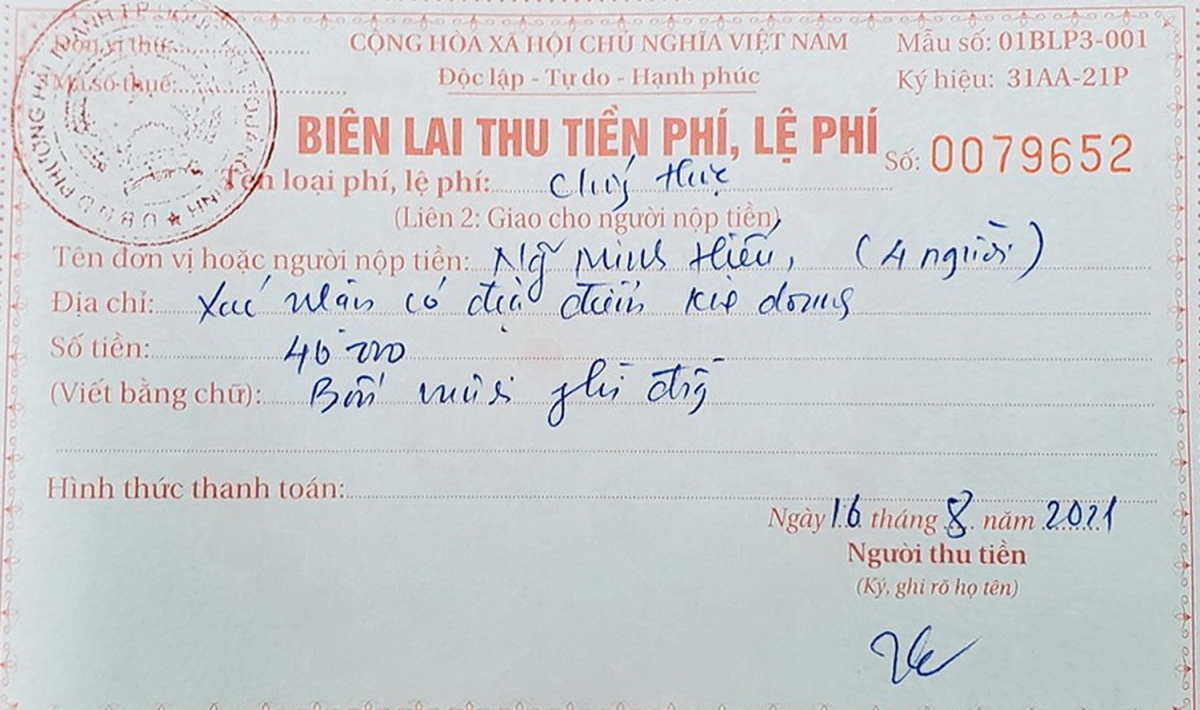 Đơn vị thu:
CỘNG HÒA XÃ HỘI CHỦ NGHĨA VIỆT NAM
Mẫu số: 01BLP3-001
Mã số thuế:
Độc lập - Tự do - Hạnh phúc
Ký hiệu: 31AA-21P
BIÊN LAI THU TIỀN PHÍ, LỆ PHÍ
Số: 0079652
Tên loại phí, lệ phí: Chứng thực
(Liên 2: Giao cho người nộp tiền)
Tên đơn vị hoặc người nộp tiền: Ng Minh Hiếu, (4 người)
Địa chỉ: Xác nhận có địa điểm
Số tiền: 40
(Viết bằng chữ): Bốn mươi đồng
Hình thức thanh toán:
Ngày 16 tháng 8 năm 2021
Người thu tiền
(Ký, ghi rõ họ tên)